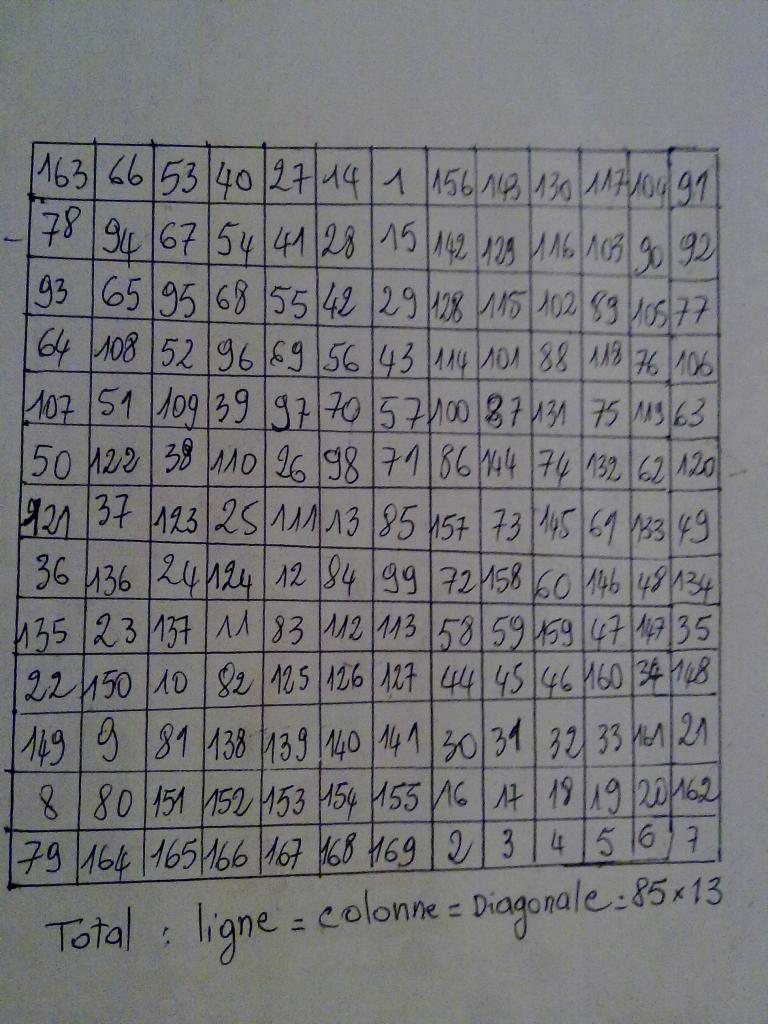 163 66 53 40 27 14 1 156 143 130 117 104 91
78 94 67 54 41 28 15 142 129 116 103 90 92
93 65 95 68 55 42 29 128 115 102 89 105 77
64 108 52 96 69 56 43 114 101 88 118 76 106
107 51 109 39 97 70 57 100 87 131 75 119 63
50 122 38 110 26 98 71 86 144 74 132 62 120
121 37 123 25 111 13 85 157 73 145 61 133 49
36 136 24 124 12 84 99 72 158 60 146 48 134
135 23 137 11 83 112 113 58 59 159 47 147 35
22 150 10 82 125 126 127 44 45 46 160 34 148
149 9 81 138 139 140 141 30 31 32 33 161 21
8 80 151 152 153 154 155 16 17 18 19 20 162
79 164 165 166 167 168 169 2 3 4 5 6 7
Total : ligne = colonne = Diagonale = 85 × 13